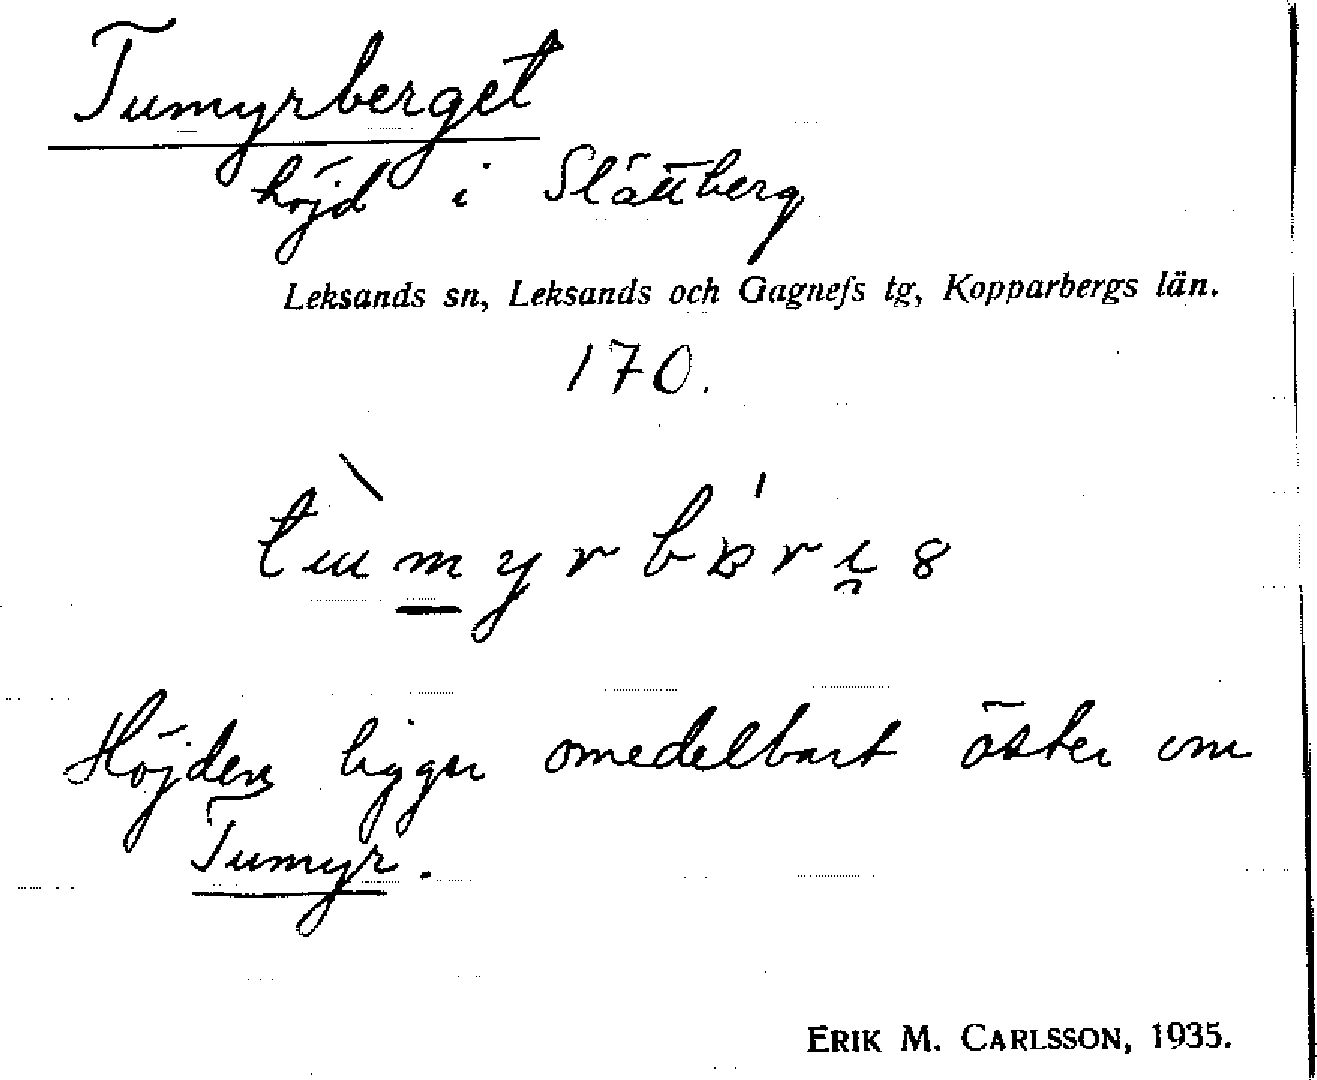 Tumyrberget
höjd i Slättberg
Leksands sn, Leksands och Gagnefs tg, Kopparbergs län.
170.
Höjden ligger omedelbart öster om
Tumyr.
ERIK M. CARLSSON, 1935.